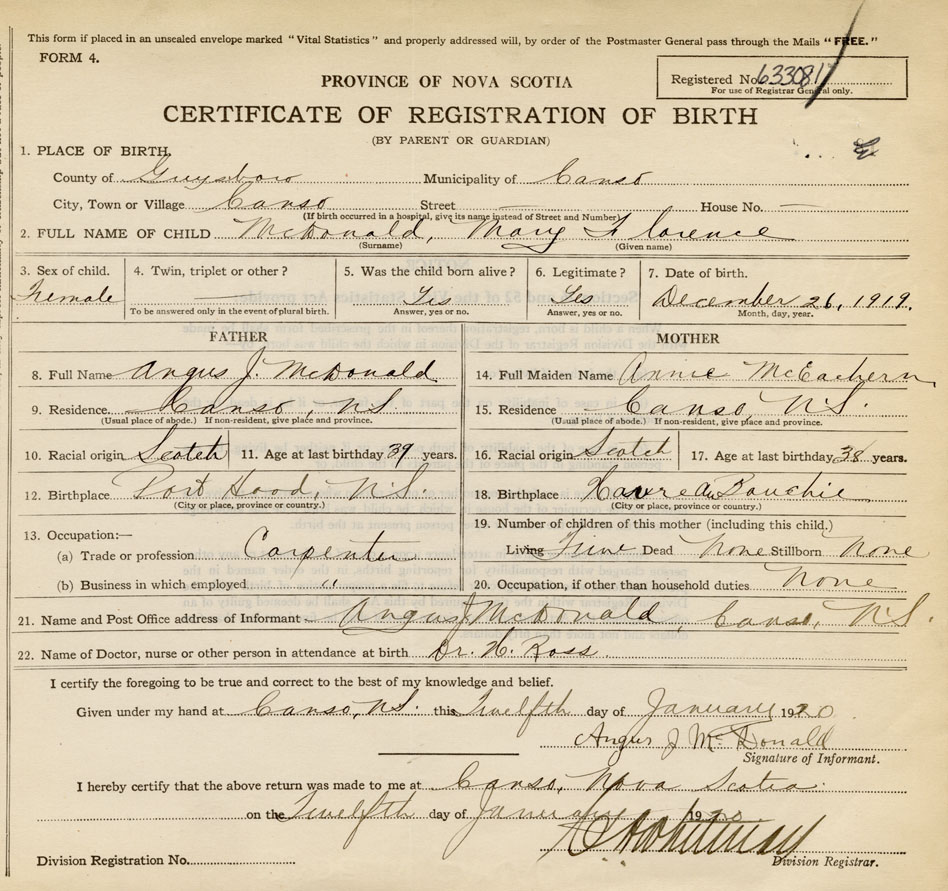 This form if placed in an unsealed envelope marked "Vital Statistics" and properly addressed will, by order of the Postmaster General pass through the Mails "FREE."
FORM 4.
PROVINCE OF NOVA SCOTIA
Registered No. 6330817
For use of Registrar General only.
CERTIFICATE OF REGISTRATION OF BIRTH
(BY PARENT OR GUARDIAN)
1. PLACE OF BIRTH
County of Guysboro Municipality of Canso
City, Town or Village Canso Street — House No. —
(If birth occurred in a hospital, give its name instead of Street and Number)
2. FULL NAME OF CHILD McDonald, Mary Florence
(Surname) (Given name)
3. Sex of child. 4. Twin, triplet or other? 5. Was the child born alive? 6. Legitimate? 7. Date of birth.
Female — Yes Yes December 26, 1919.
To be answered only in the event of plural birth. Answer, yes or no. Answer, yes or no. Month, day, year.
FATHER MOTHER
8. Full Name Angus J. McDonald 14. Full Maiden Name Annie McEachern
9. Residence Canso, N.S. 15. Residence Canso, N.S.
(Usual place of abode.) If non-resident, give place and province. (Usual place of abode.) If non-resident, give place and province.
10. Racial origin Scotch 11. Age at last birthday 39 years. 16. Racial origin Scotch 17. Age at last birthday 38 years.
12. Birthplace Port Hood, N.S. 18. Birthplace Havre au Bouchie
(City or place, province or country.) (City or place, province or country.)
13. Occupation:— 19. Number of children of this mother (including this child.)
(a) Trade or profession Carpenter Living Dead None Stillborn None
(b) Business in which employed " 20. Occupation, if other than household duties None
21. Name and Post Office address of Informant Angus J McDonald Canso, N.S.
22. Name of Doctor, nurse or other person in attendance at birth Dr. H. Ross
I certify the foregoing to be true and correct to the best of my knowledge and belief.
Given under my hand at Canso, N.S. this Twelfth day of January 1920
Angus J McDonald
Signature of Informant.
I hereby certify that the above return was made to me at Canso, Nova Scotia
on the Twelfth day of January 1920
Division Registration No. Division Registrar.